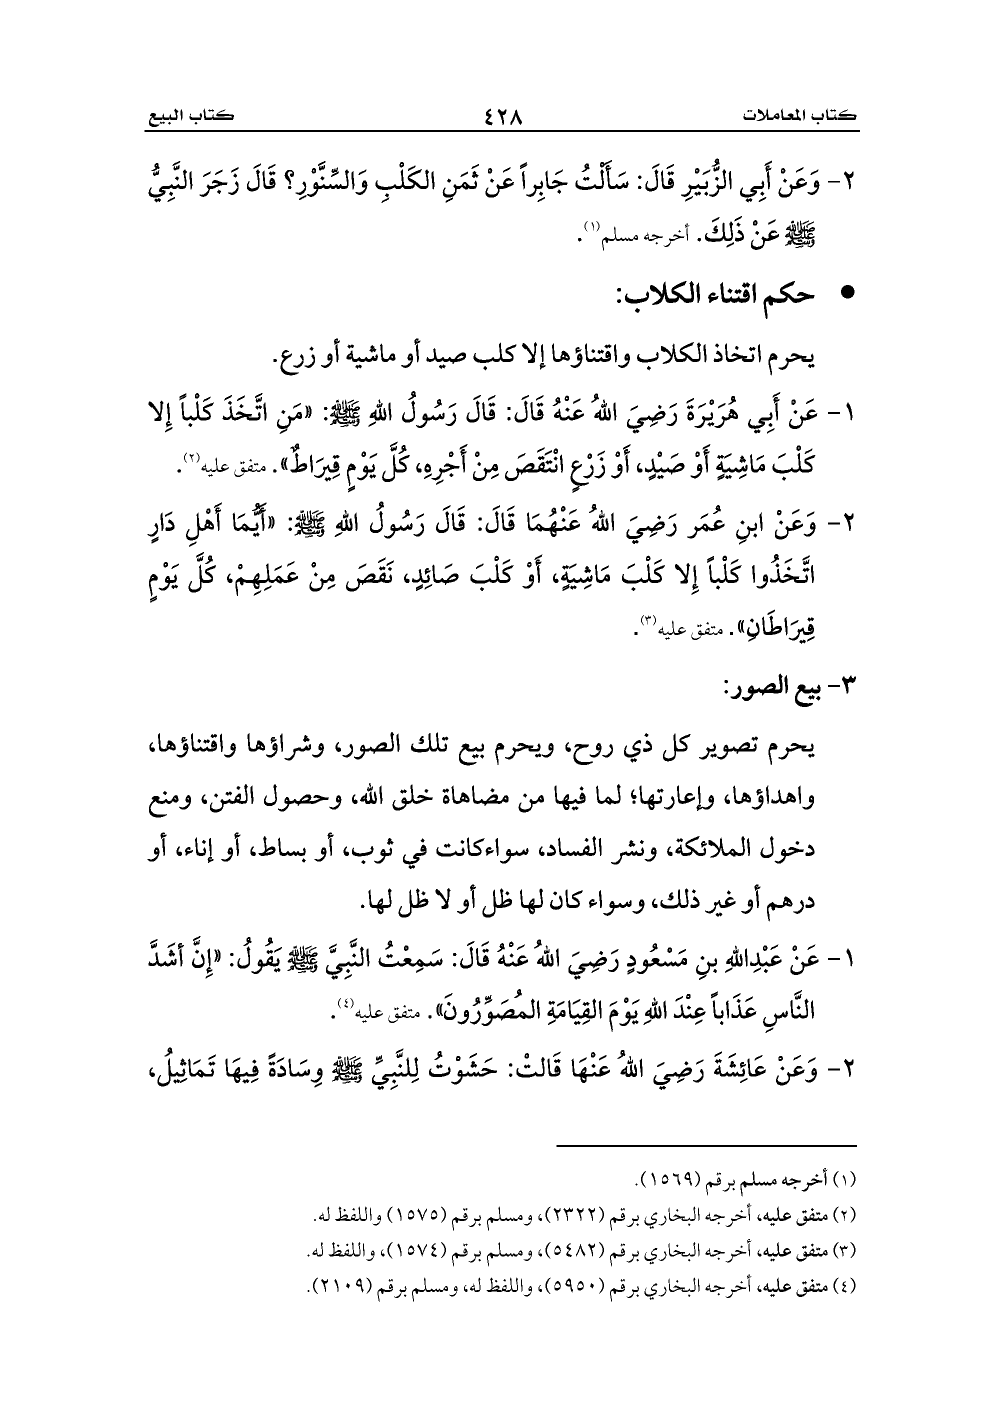 كتاب المعاملات ٤٢٨ كتاب البيع
٢- وَعَنْ أَبِي الزُّبَيْرِ قَالَ: سَأَلْتُ جَابِراً عَنْ ثَمَنِ الكَلْبِ وَالسِّنَّوْرِ؟ قَالَ زَجَرَ النَّبِيُّ
ﷺ عَنْ ذَلِكَ. أخرجه مسلم(١).
● حكم اقتناء الكلاب:
يحرم اتخاذ الكلاب واقتناؤها إلا كلب صيد أو ماشية أو زرع.
١- عَنْ أَبِي هُرَيْرَةَ رَضِيَ اللهُ عَنْهُ قَالَ: قَالَ رَسُولُ اللهِ ﷺ: «مَنِ اتَّخَذَ كَلْباً إِلا
كَلْبَ مَاشِيَةٍ أَوْ صَيْدٍ، أَوْ زَرْعٍ انْتَقَصَ مِنْ أَجْرِهِ، كُلَّ يَوْمٍ قِيرَاطٌ». متفق عليه(٢).
٢- وَعَنْ ابنِ عُمَر رَضِيَ اللهُ عَنْهُمَا قَالَ: قَالَ رَسُولُ اللهِ ﷺ: «أَيُّمَا أَهْلِ دَارٍ
اتَّخَذُوا كَلْباً إِلا كَلْبَ مَاشِيَةٍ، أَوْ كَلْبَ صَائِدٍ، نَقَصَ مِنْ عَمَلِهِمْ، كُلَّ يَوْمٍ
قِيرَاطَانِ». متفق عليه(٣).
٣- بيع الصور:
يحرم تصوير كل ذي روح، ويحرم بيع تلك الصور، وشراؤها واقتناؤها،
واهداؤها، وإعارتها؛ لما فيها من مضاهاة خلق الله، وحصول الفتن، ومنع
دخول الملائكة، ونشر الفساد، سواءكانت في ثوب، أو بساط، أو إناء، أو
درهم أو غير ذلك، وسواء كان لها ظل أو لا ظل لها.
١- عَنْ عَبْدِاللهِ بنِ مَسْعُودٍ رَضِيَ اللهُ عَنْهُ قَالَ: سَمِعْتُ النَّبِيَّ ﷺ يَقُولُ: «إِنَّ أشَدَّ
النَّاسِ عَذَاباً عِنْدَ اللهِ يَوْمَ القِيَامَةِ المُصَوِّرُونَ». متفق عليه(٤).
٢- وَعَنْ عَائِشَةَ رَضِيَ اللهُ عَنْهَا قَالتْ: حَشَوْتُ لِلنَّبِيِّ ﷺ وِسَادَةً فِيهَا تَمَاثِيلُ،
(١) أخرجه مسلم برقم (١٥٦٩).
(٢) متفق عليه، أخرجه البخاري برقم (٢٣٢٢)، ومسلم برقم (١٥٧٥) واللفظ له.
(٣) متفق عليه، أخرجه البخاري برقم (٥٤٨٢)، ومسلم برقم (١٥٧٤)، واللفظ له.
(٤) متفق عليه، أخرجه البخاري برقم (٥٩٥٠)، واللفظ له، ومسلم برقم (٢١٠٩).